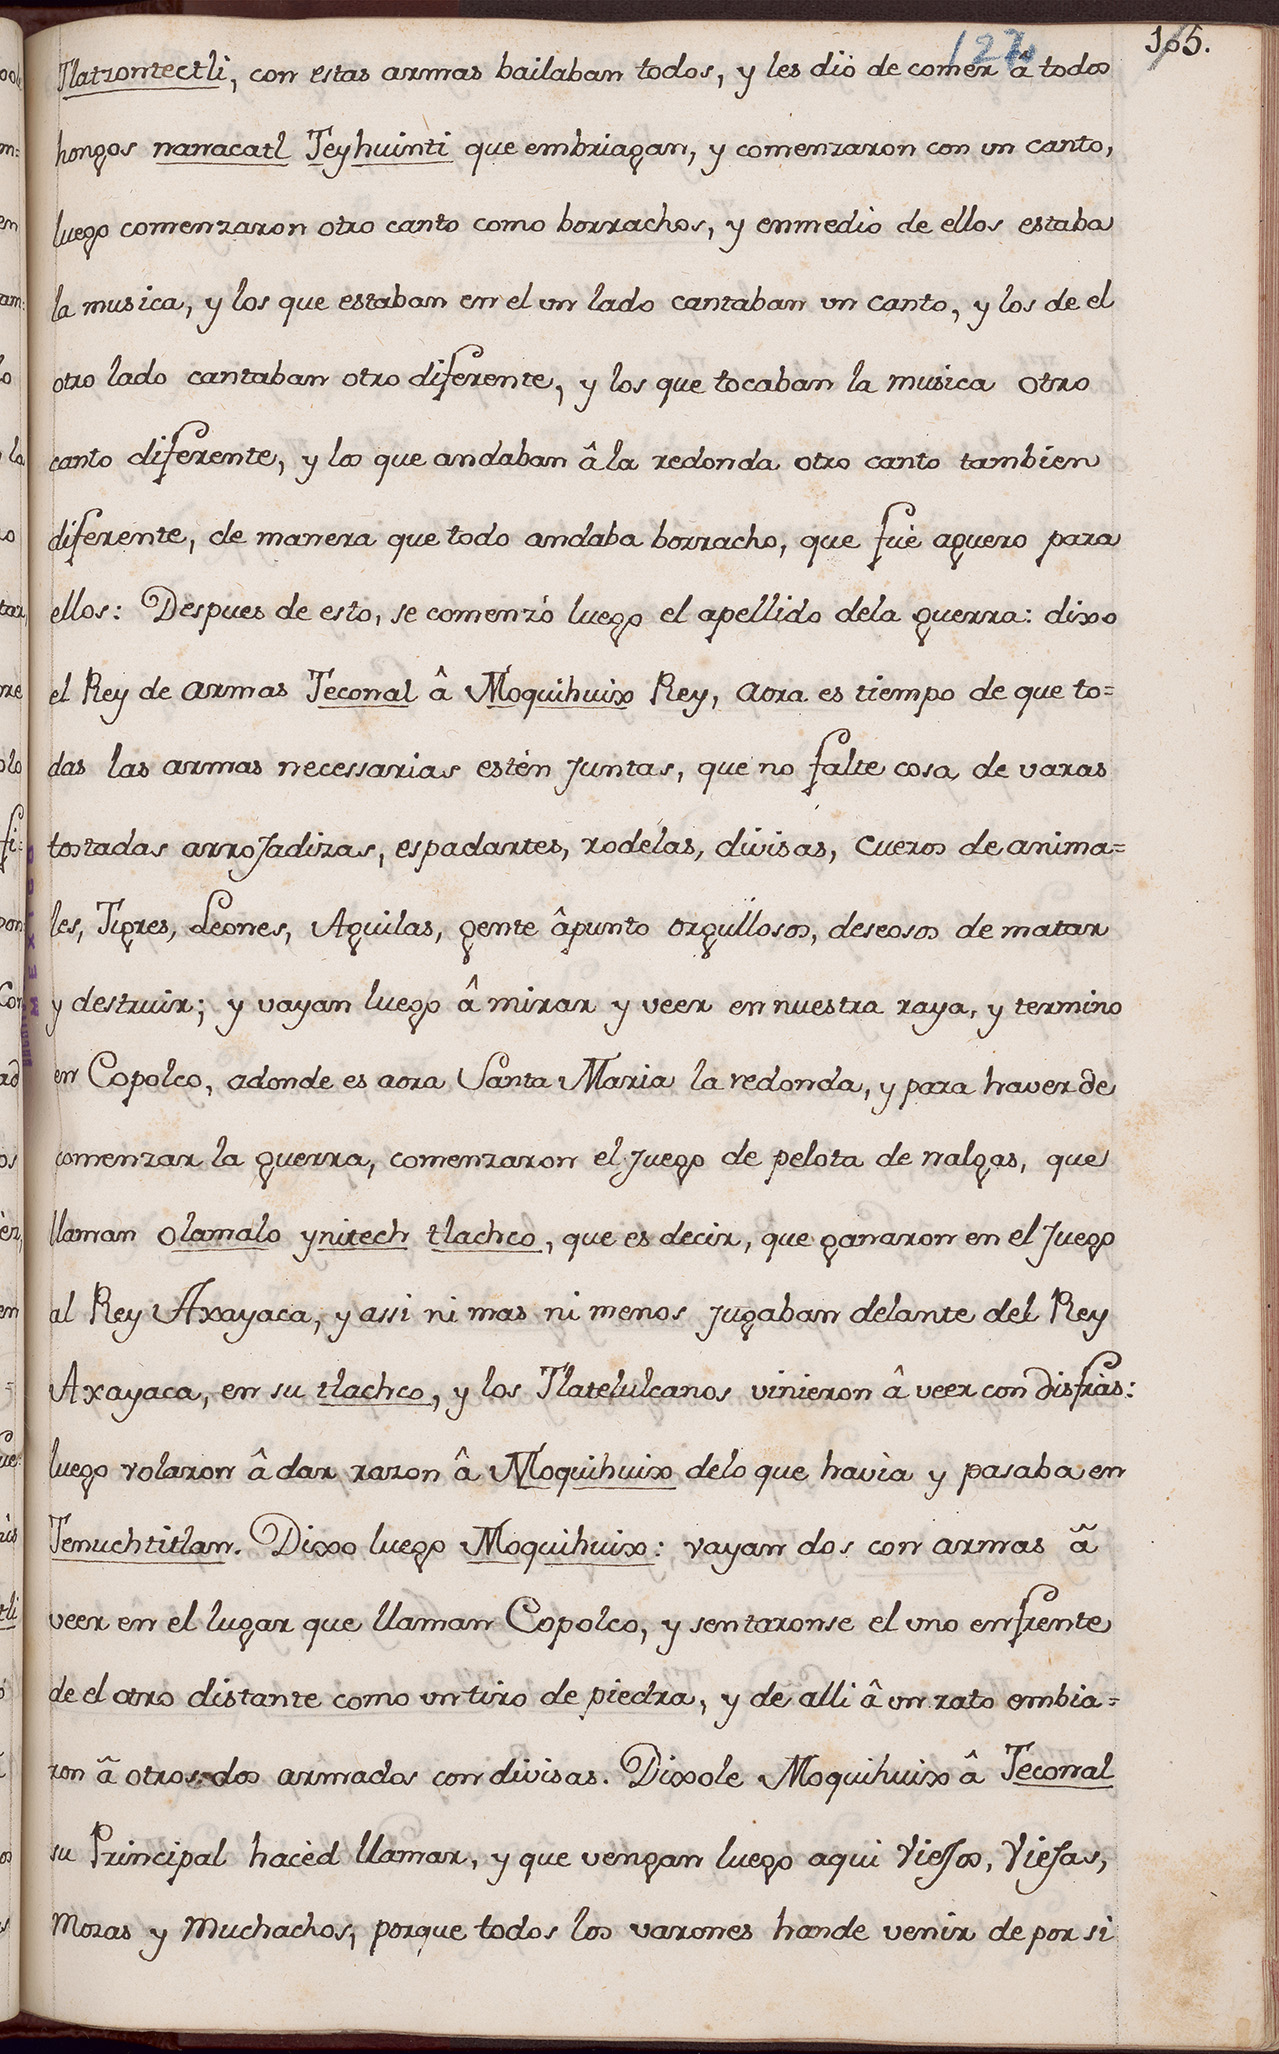 165.
127
Tlatzontectli, con estas armas bailaban todos, y les diò de comer â todos
hongos nanacatl Teyhuinti que embriagan, y comenzaron con un canto,
luego comenzaron otro canto como borrachos, y enmedio de ellos estaba
la musica, y los que estaban en el un lado cantaban un canto, y los de el
otro lado cantaban otro diferente, y los que tocaban la musica otro
canto diferente, y los que andaban â la redonda otro canto tambien
diferente, de manera que todo andaba borracho, que fuè aguero para
ellos: Despues de esto, se comenzò luego el apellido dela guerra: dixo
el Rey de armas Teconal â Moquihuix Rey, aora es tiempo de que to=
das las armas necessarias estèn juntas, que no falte cosa de varas
tostadas arrojadizas, espadartes, rodelas, divisas, cueros de anima=
les, Tigres, Leones, Aguilas, gente âpunto orgullosos, deseosos de matar
y destruir; y vayan luego â mirar y veer en nuestra raya, y termino
en Copolco, adonde es aora Santa Maria la redonda, y para haver de
comenzar la guerra, comenzaron el juego de pelota de nalgas, que
llaman olamalo ynitech tlachco, que es decir, que ganaron en el juego
al Rey Axayaca, y assi ni mas ni menos jugaban delante del Rey
Axayaca, en su tlachco, y los Tlatelulcanos vinieron â veer con disfràs:
luego volaron â dar razon â Moquihuix delo que havia y pasaba en
Tenuchtitlan. Dixo luego Moquihuix: vayan dos con armas ã
veer en el lugar que llaman Copolco, y sentaronse el uno enfrente
de el otro distante como un tiro de piedra, y de alli â un rato embia=
ron ã otros dos armados con divisas. Dixole Moquihuix â Teconal
su Principal hacèd llamar, y que vengan luego aqui viejos, viejas,
Mozas y Muchachos, porque todos los varones hande venir de por sì